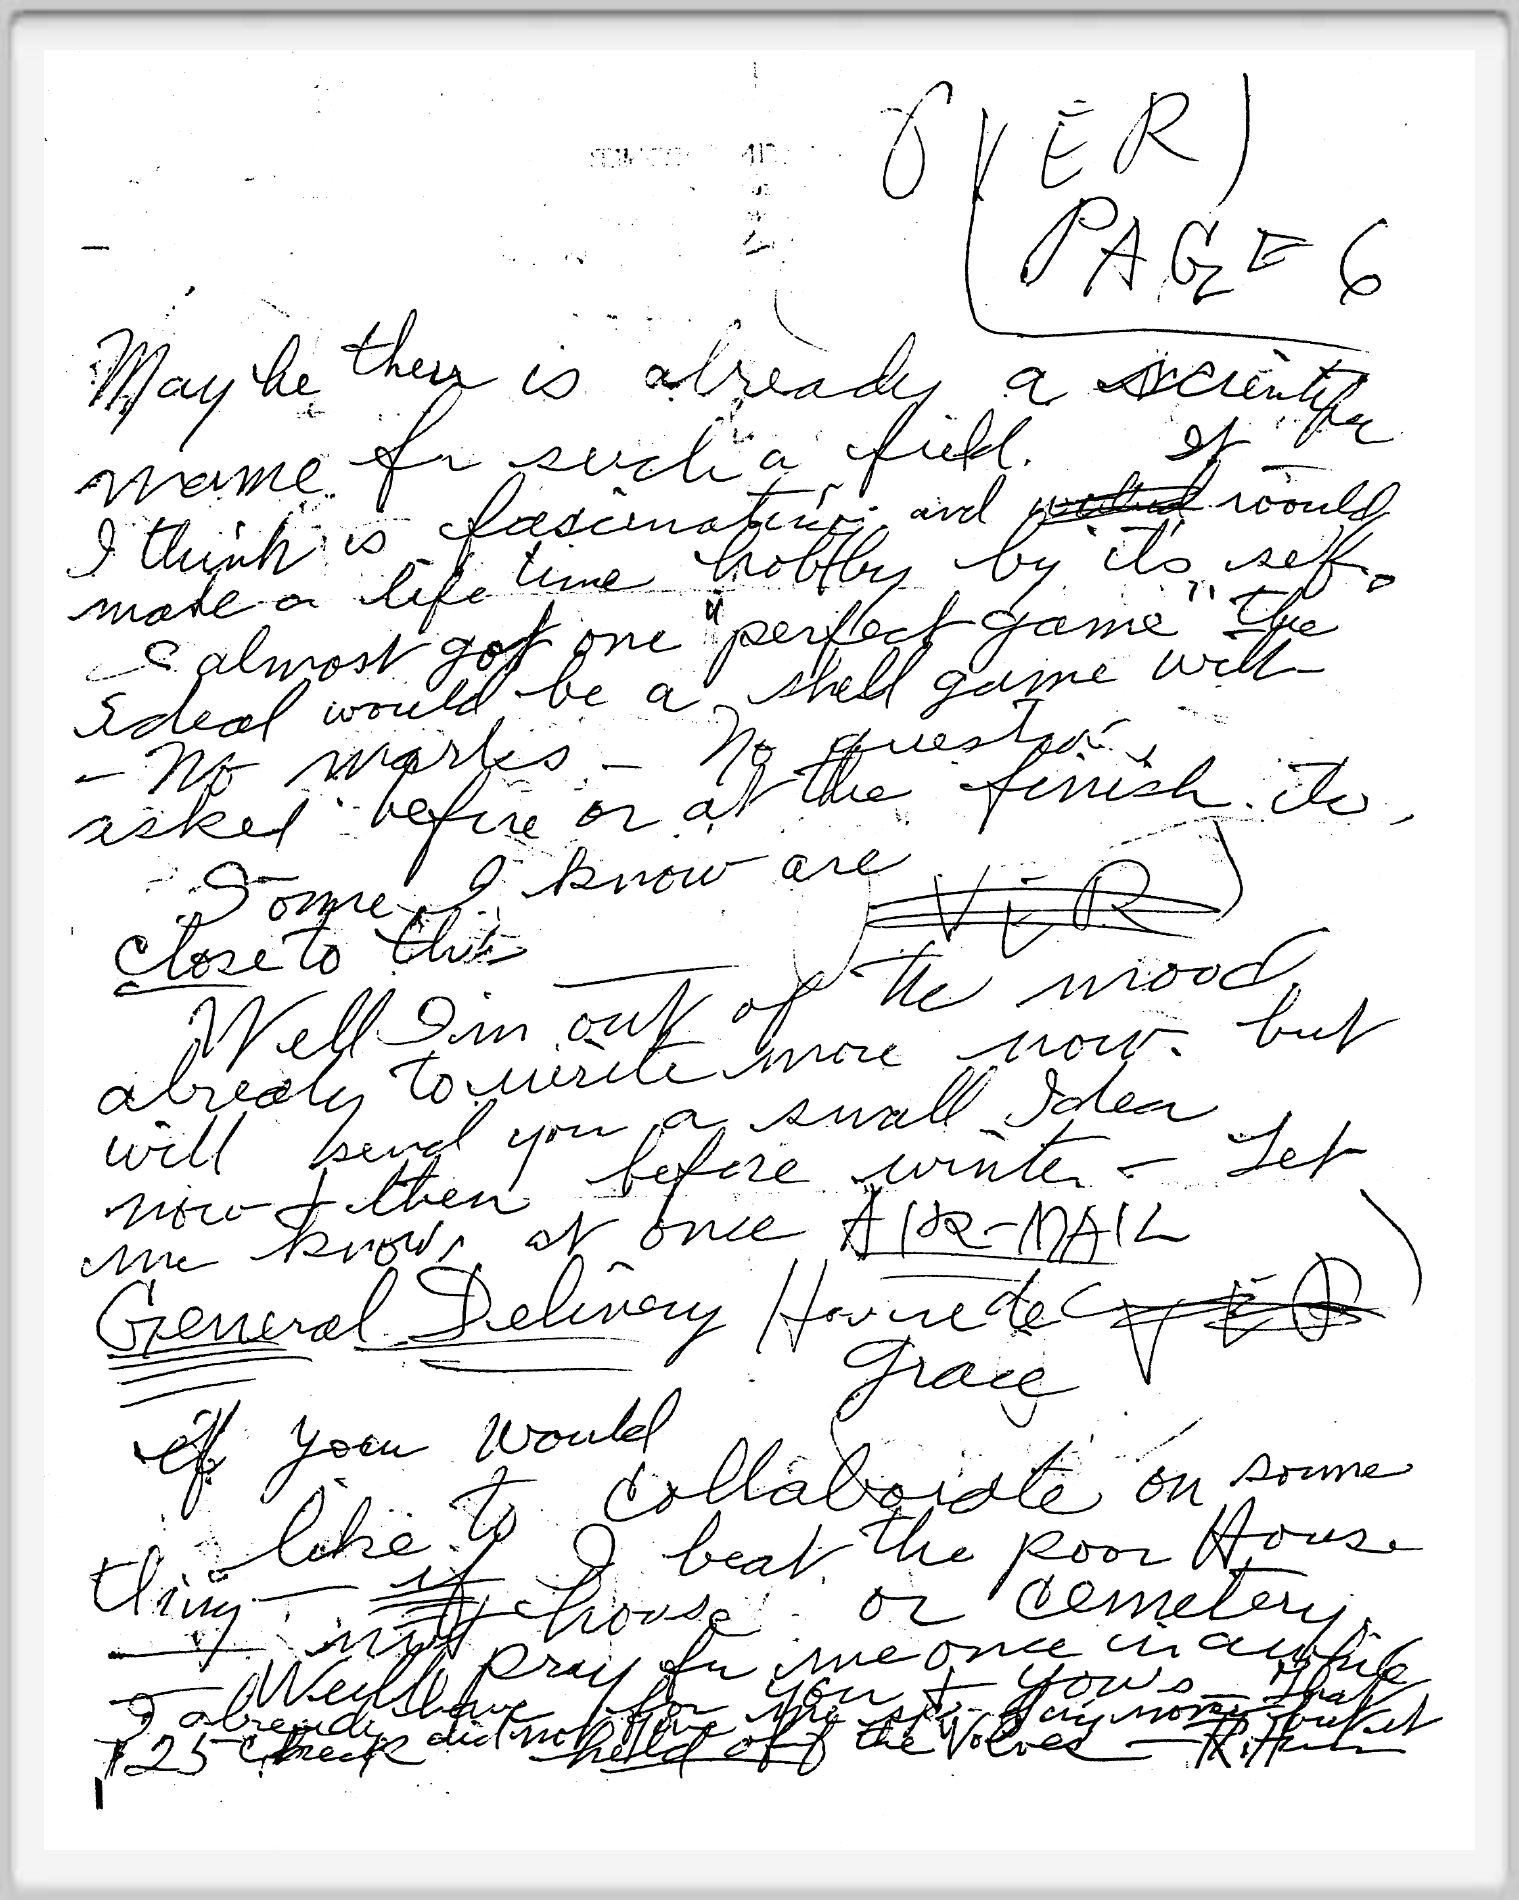 OVER)
PAGE 6
Maybe there is already a scientific
name for such a field. It
I think is fascinating and would
make a life time hobby by it's self.
I almost got one "perfect game" the
Ideal would be a shell game with
- No marks - No questions
asked before or at the finish. etc,
Some I know are
VER)
close to this
Well I'm out of the mood
already to write more now. but
will send you a small Idea
now & then before winter - Let
me know, at once AIR-MAIL
General Delivery Havre de VER)
Grace
if you would
like to collaborate on some
thing - if I beat the poor House
nut house or cemetery.
Well pray for me once in a while
I already have for you & yours - That
$25 check did not
held off the Wolves -